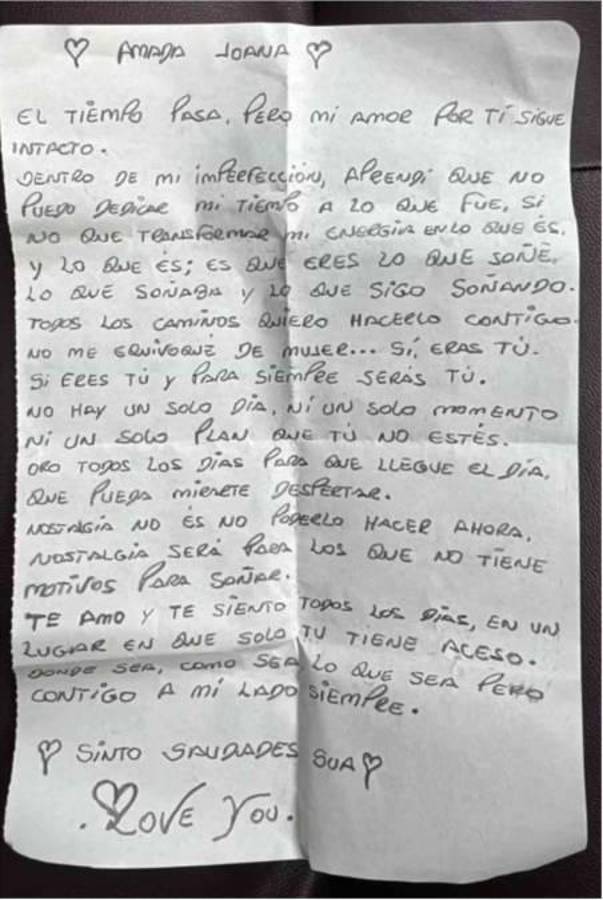 ♡ AMADA JOANA ♡
EL TIEMPO PASA, PERO MI AMOR POR TÍ SIGUE
INTACTO.
DENTRO DE MI IMPERFECCIÓN, APRENDÍ QUE NO
PUEDO DEDICAR MI TIEMPO A LO QUE FUE, SI
NO QUE TRANSFORMAR MI ENERGIA EN LO QUE ÉS.
Y LO QUE ÉS; ES QUE ERES LO QUE SOÑÉ,
LO QUE SOÑABA Y LO QUE SIGO SOÑANDO.
TODOS LOS CAMINOS QUIERO HACERLO CONTIGO.
NO ME EQUIVOQUÉ DE MUJER... SÍ, ERAS TÚ.
SI ERES TÚ Y PARA SIEMPRE SERÁS TÚ.
NO HAY UN SOLO DÍA, NI UN SOLO MOMENTO
NI UN SOLO PLAN QUE TÚ NO ESTÉS.
ORO TODOS LOS DÍAS PARA QUE LLEGUE EL DÍA,
QUE PUEDA MIERETE DESPERTAR.
NOSTALGÍA NO ÉS NO PODERLO HACER AHORA,
NOSTALGIA SERÁ PARA LOS QUE NO TIENE
MOTIVOS PARA SOÑAR.
TE AMO Y TE SIENTO TODOS LOS DÍAS, EN UN
LUGIAR EN QUE SOLO TU TIENE ACESO.
DONDE SEA, COMO SEA LO QUE SEA PERO
CONTIGO A MI LADO SIEMPRE.
♡ SINTO SAUDADES SUA ♡
. LOVE YOU.